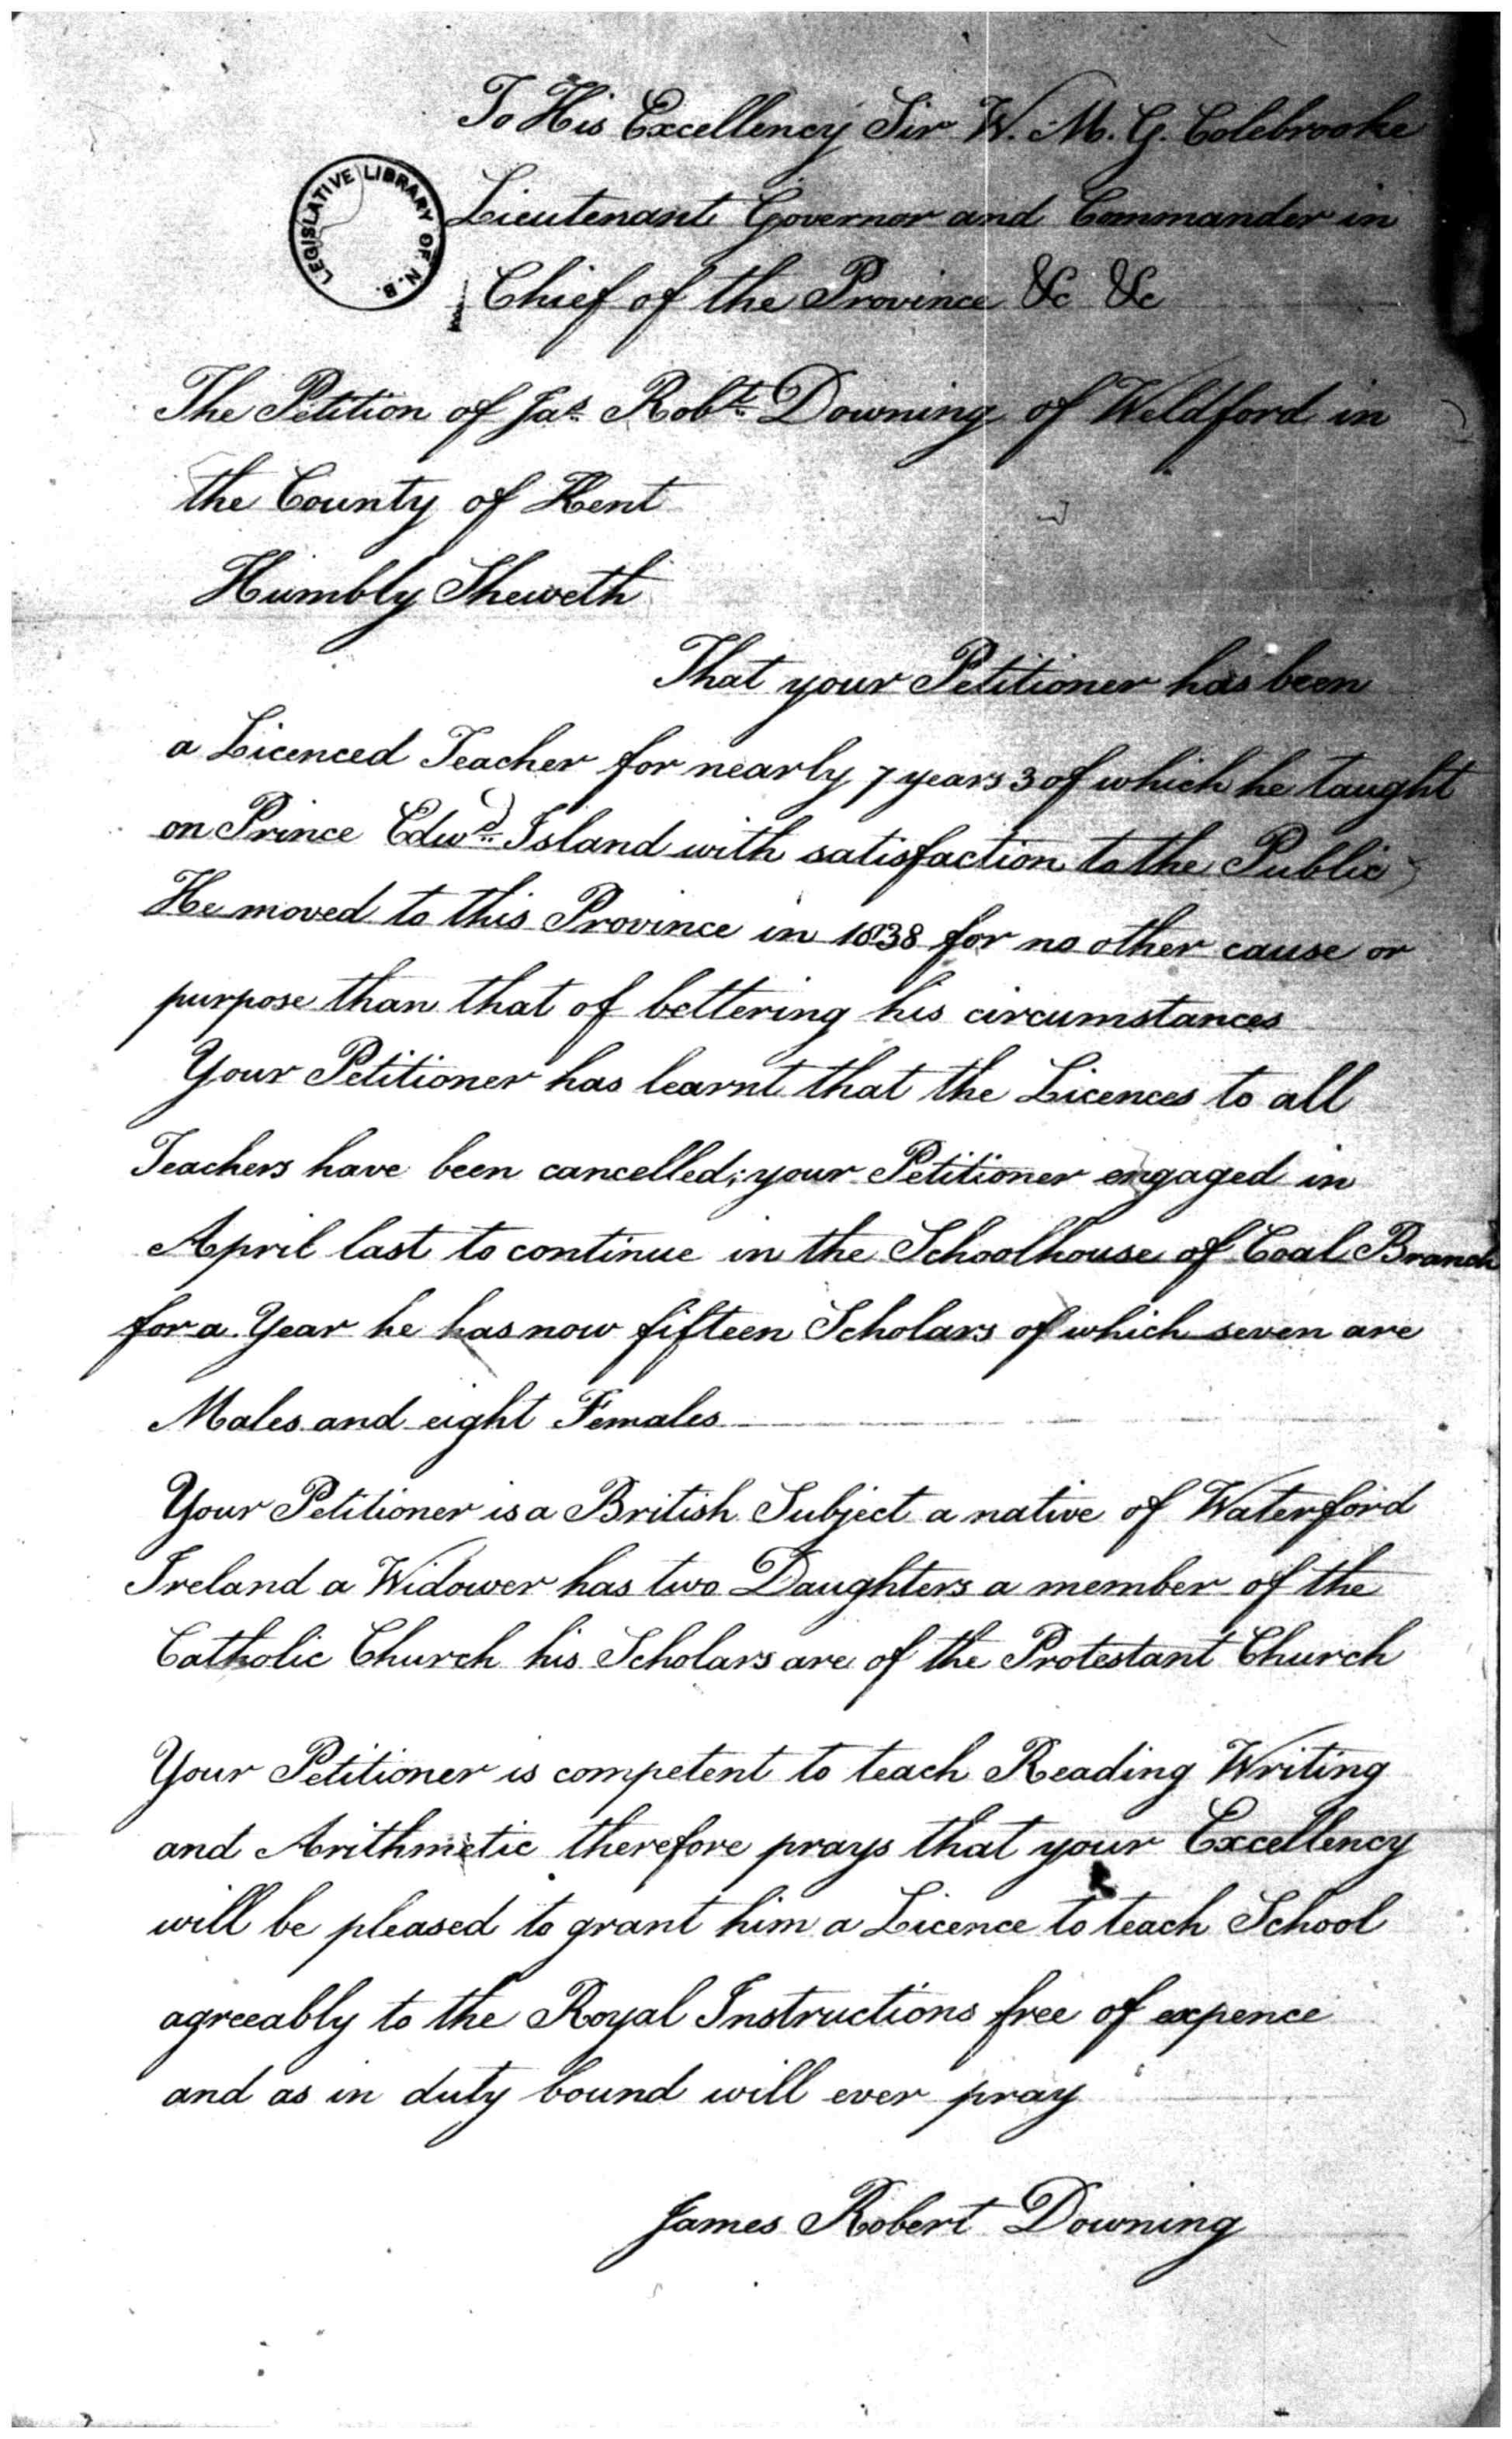 To His Excellency Sir W. M. G. Colebrooke
LEGISLATIVE LIBRARY OF N.B.
Lieutenant Governor and Commander in
Chief of the Province &c &c
The Petition of Jas. Robt. Downing of Weldford in
the County of Kent
Humbly Sheweth
That your Petitioner has been
a Licenced Teacher for nearly 7 years 3 of which he taught
on Prince Edwd. Island with satisfaction to the Public
He moved to this Province in 1838 for no other cause or
purpose than that of bettering his circumstances
Your Petitioner has learnt that the Licences to all
Teachers have been cancelled; your Petitioner engaged in
April last to continue in the Schoolhouse of Coal Branch
for a Year he has now fifteen Scholars of which seven are
Males and eight Females
Your Petitioner is a British Subject a native of Waterford
Ireland a Widower has two Daughters a member of the
Catholic Church his Scholars are of the Protestant Church
Your Petitioner is competent to teach Reading Writing
and Arithmetic therefore prays that your Excellency
will be pleased to grant him a Licence to teach School
agreeably to the Royal Instructions free of expence
and as in duty bound will ever pray
James Robert Downing